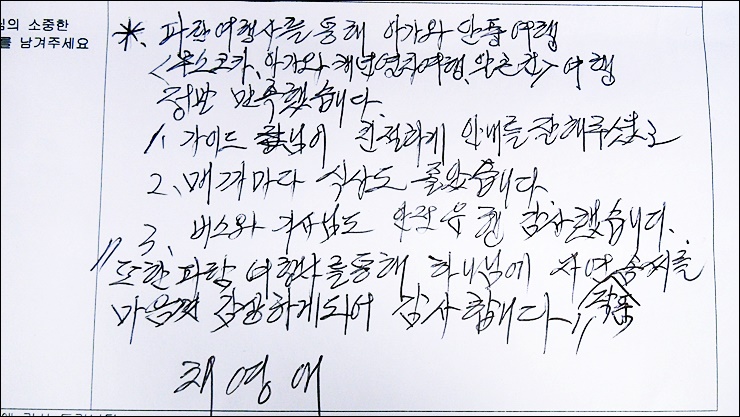 님의 소중한
를 남겨주세요
※. 파란여행사를 통해 아가와 단풍여행
<무스코카, 아가와 캐년열차여행, 알곤퀸> 여행
정말 만족했습니다.
1. 가이드 님이 친절하게 안내를 잘해주셨고
2. 매끼마다 식사도 좋았습니다.
3. 버스와 기사님도 안전운행 감사했습니다.
또한 파란여행사를 통해 하나님에 자연 솜씨를
마음껏 감상하게되어 감사합니다.
채영애